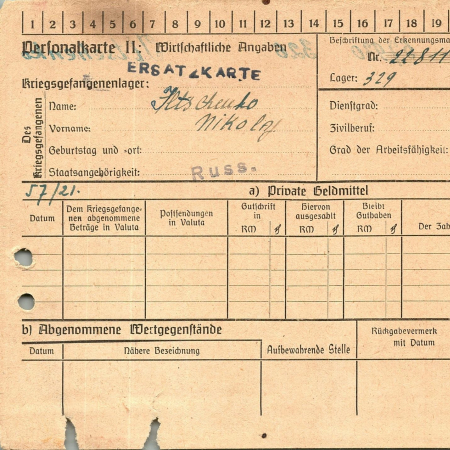 1 2 3 4 5 6 7 8 9 10 11 12 13 14 15 16 17 18 19
Personalkarte II: Wirtschaftliche Angaben
Beschriftung der Erkennungsma
Nr. 22811
ERSATZKARTE
Kriegsgefangenenlager:
Lager: 329
Des Kriegsgefangenen
Name: Iltschenko
Dienstgrad:
Vorname: Nikolaj
Zivilberuf:
Geburtstag und -ort:
Grad der Arbeitsfähigkeit:
Staatsangehörigkeit: Russ.
57/21.
a) Private Geldmittel
Datum
Dem Kriegsgefange-
nen abgenommene
Beträge in Valuta
Postsendungen
in Valuta
Gutschrift
in
RM ₰
Hiervon
ausgezahlt
RM ₰
Bleibt
Guthaben
RM ₰
Der Zah
b) Abgenommene Wertgegenstände
Rückgabevermerk
mit Datum
Datum
Nähere Bezeichnung
Aufbewahrende Stelle